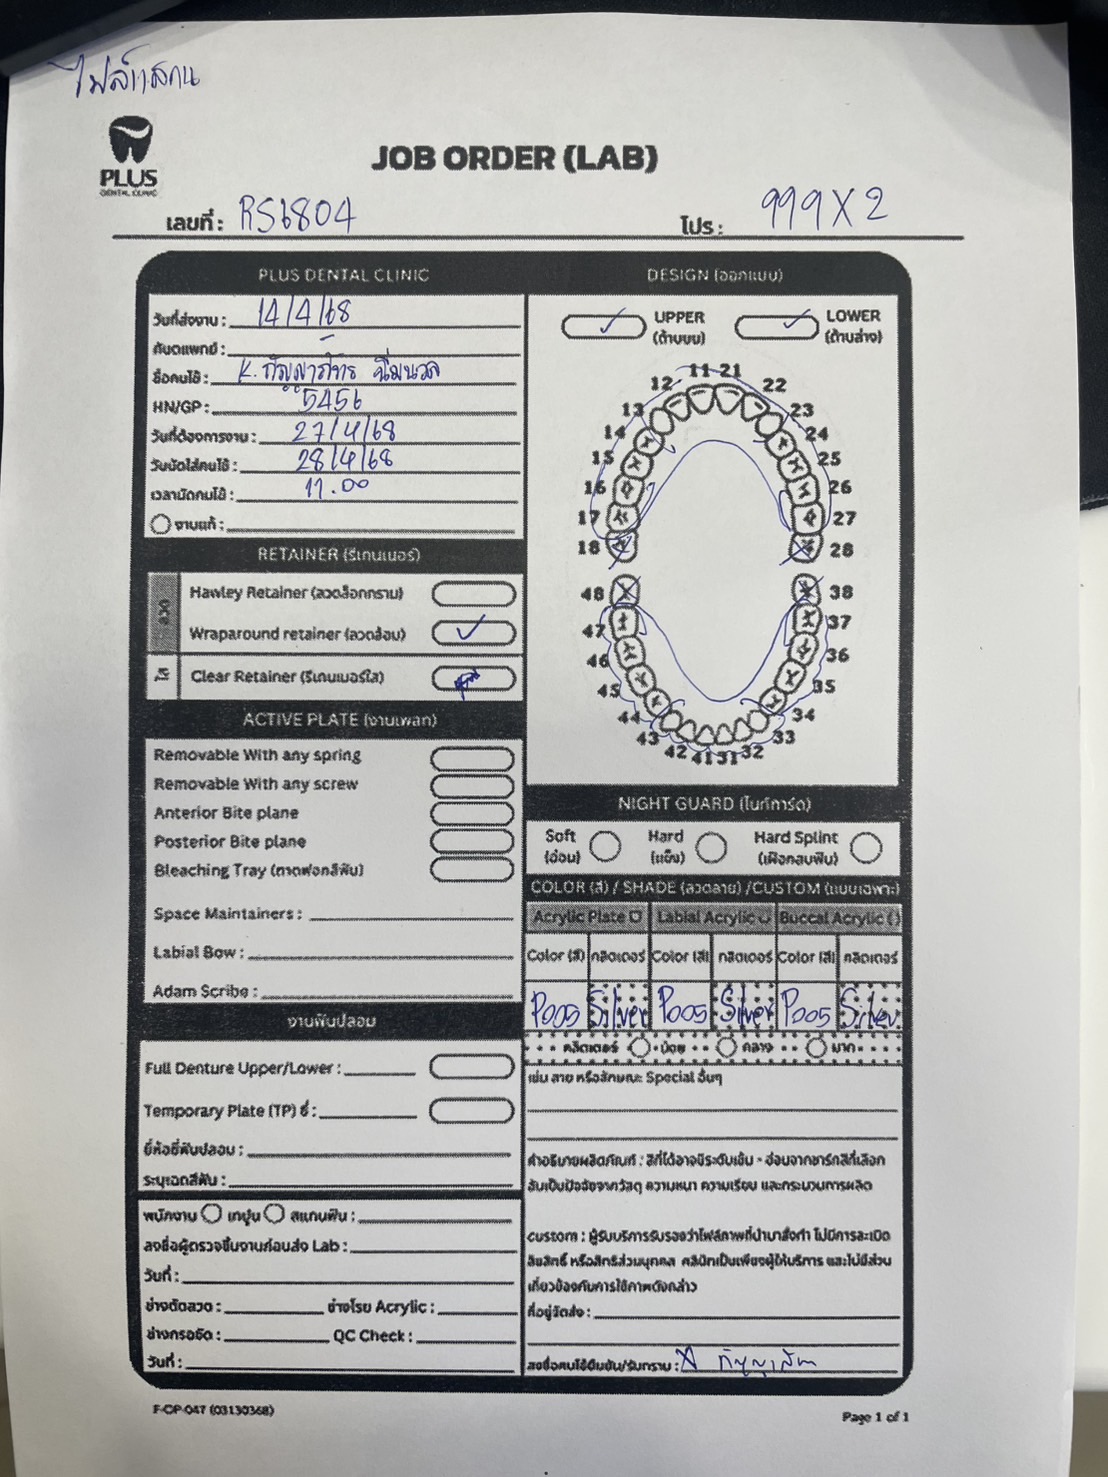 ไฟล์แสกน
PLUS
DENTAL CLINIC
JOB ORDER (LAB)
เลขที่ : RS6804
โปร : 999 X 2
PLUS DENTAL CLINIC
วันที่ส่งงาน : 14/4/68
ทันตแพทย์ : -
ชื่อคนไข้ : K.
HN/GP : 5456
วันที่ต้องการงาน : 27/4/68
วันนัดใส่คนไข้ : 28/4/68
เวลานัดคนไข้ : 11.00
งานแก้ :
RETAINER (รีเทนเนอร์)
ลวด
Hawley Retainer (ลวดล็อกกราม)
Wraparound retainer (ลวดอ้อม) ✓
ใส
Clear Retainer (รีเทนเนอร์ใส)
ACTIVE PLATE (งานเพลท)
Removable With any spring
Removable With any screw
Anterior Bite plane
Posterior Bite plane
Bleaching Tray (ถาดฟอกสีฟัน)
Space Maintainers :
Labial Bow :
Adam Scribe :
งานฟันปลอม
Full Denture Upper/Lower :
Temporary Plate (TP) ซี่ :
ยี่ห้อซี่ฟันปลอม :
ระบุเฉดสีฟัน :
พนักงาน เทปูน สแกนฟัน :
ลงชื่อผู้ตรวจชิ้นงานก่อนส่ง Lab :
วันที่ :
ช่างดัดลวด : ช่างโรย Acrylic :
ช่างกรอขัด : QC Check :
วันที่ :
DESIGN (ออกแบบ)
✓ UPPER (ด้านบน) ✓ LOWER (ด้านล่าง)
11 21
12 22
13 23
14 24
15 25
16 26
17 27
18 28
48 38
47 37
46 36
45 35
44 34
43 33
42 41 31 32
NIGHT GUARD (ไนท์การ์ด)
Soft (อ่อน) Hard (แข็ง) Hard Splint (เฝือกสบฟัน)
COLOR (สี) / SHADE (ลวดลาย) /CUSTOM (แบบเฉพาะ)
Acrylic Plate Labial Acrylic Buccal Acrylic
Color (สี) กลิตเตอร์ Color (สี) กลิตเตอร์ Color (สี) กลิตเตอร์
P005 Silver P005 Silver P005 Silver
กลิตเตอร์ น้อย กลาง มาก
เช่น ลาย หรือลักษณะ Special อื่นๆ
คำอธิบายผลิตภัณฑ์ : สีที่ได้อาจมีระดับเข้ม - อ่อนจากชาร์ทสีที่เลือก
อันเป็นปัจจัยจากวัสดุ ความหนา ความเรียบ และกระบวนการผลิต
custom : ผู้รับบริการรับรองว่าไฟล์ภาพที่นำมาสั่งทำ ไม่มีการละเมิด
ลิขสิทธิ์ หรือสิทธิส่วนบุคคล คลินิกเป็นเพียงผู้ให้บริการ และไม่มีส่วน
เกี่ยวข้องกับการใช้ภาพดังกล่าว
ที่อยู่จัดส่ง :
ลงชื่อคนไข้ยืนยัน/รับทราบ :
F-CP-047 (03130368)
Page 1 of 1